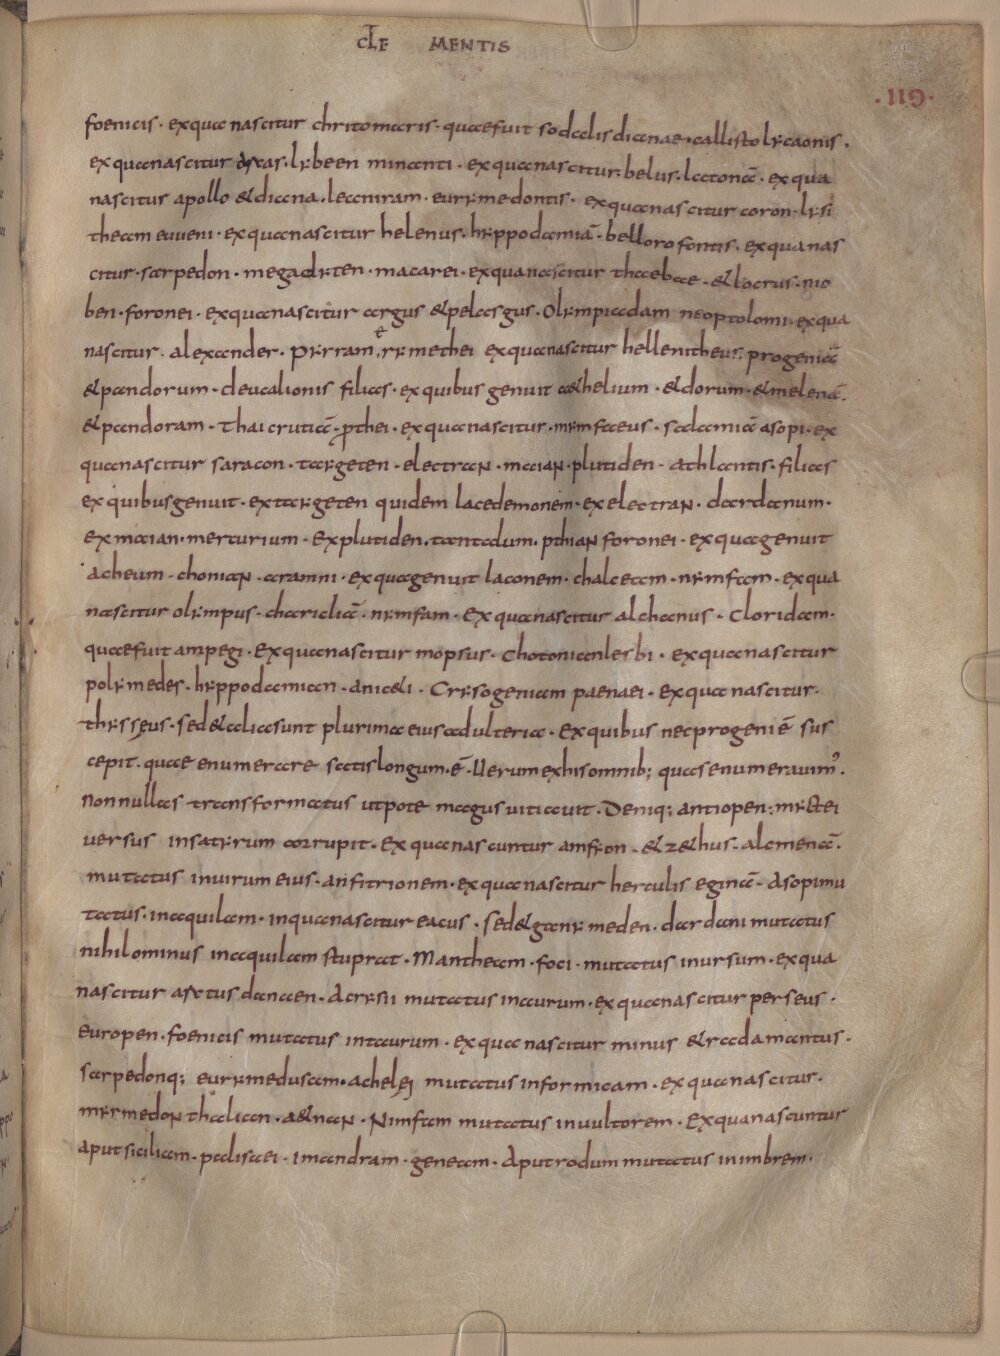 CLE MENTIS
·119·
foenicis · exqua nascitur chritomaris · quaefuit sodalis dianae · callisto lycaonis ·
exquanascitur orcas · lybeen minanti · exquanascitur · belus · latonā · exqua
nascitus apollo &diana · laaniram · eurymedontis · exquanascitur coron · lysi
theam euueni · exquanascitur helenus · hyppodamiā · belloro fontis · exquanas
citur · sarpedon · megaclyten · macarei · exquanascitur thaebae · &locrus · nio
ben · foronei · exquanascitur argus &pelasgus · Olympiadam neoptolomi · exqua
nascitur · alexander · Pyrram · yremethei exquanascitur hellenitheus · progeniā
&pandorum · deucalionis filias · exquibus genuit a&helium · &dorum · &melenā ·
&pandoram · Thaicrutiā · pthei · exquanascitur · myrmfaeus · sadamiā asopi · ex
quanascitur saracon · targeten · electran · maian · plutiden · athlantis · filias
exquibusgenuit · extaygeten quidem lacedemonem · exelectran · dardanum ·
Exmaian · mercurium · Explutiden · tantadum · pthian foronei · exquagenuit
acheum · chonian · aramni · exquagenuit laconem · chalceam · nymfam · exqua
nascitur olympus · charicliā · nymfam · Exquanascitur alchanus · Cloridam ·
quaefuit ampegi · Exquanascitur mopsus · Chotonianlesbi · exquanascitur
polymedes · hyppodamian · anic&i · Crysogeniam paenaei · exqua nascitur ·
thysseus · sed&aliasunt plurima eiusadulteria · Exquibus necprogeniē sus
cepit · quae enumerare satislongum · ē · Uerumexhisomnib; quasenumerauim' ·
Nonnullas transformatus utpote magus uitiauit · Deniq; antiopen · nyctei
uersus insatyrum corrupit · Exquanascuntur amfeon · &z&hus · alcmenā ·
mutatus inuirum eius · anfitrionem · exquanascitur herculis eginā · Asopimu
tatus · inaquilam · inquanascitur eacus · sed&gany meden · dardani mutatus
nihilominus inaquilam stuprat · Mantheam · foci · mutatus inursum · exqua
nascitur arctus danaen · Acrysii mutatus inaurum · exquanascitur perseus ·
Europen · foenicis mutatus intaurum · exqua nascitur minus &radamantus ·
sarpedonq; eurymedusam · achel&i mutatus informicam · exquanascitur ·
myrmedon thalian · a&nan · Nimfam mutatus inuultorem · Exquanascuntur
aputsiciliam · paliscei · imandram · geneam · Aputrodum mutatus inimbrem ·